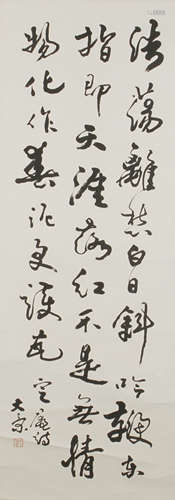 浩荡離愁白日斜吟鞭东
指即天涯落红不是無情
物化作春泥更護花
定庵詩
大宗